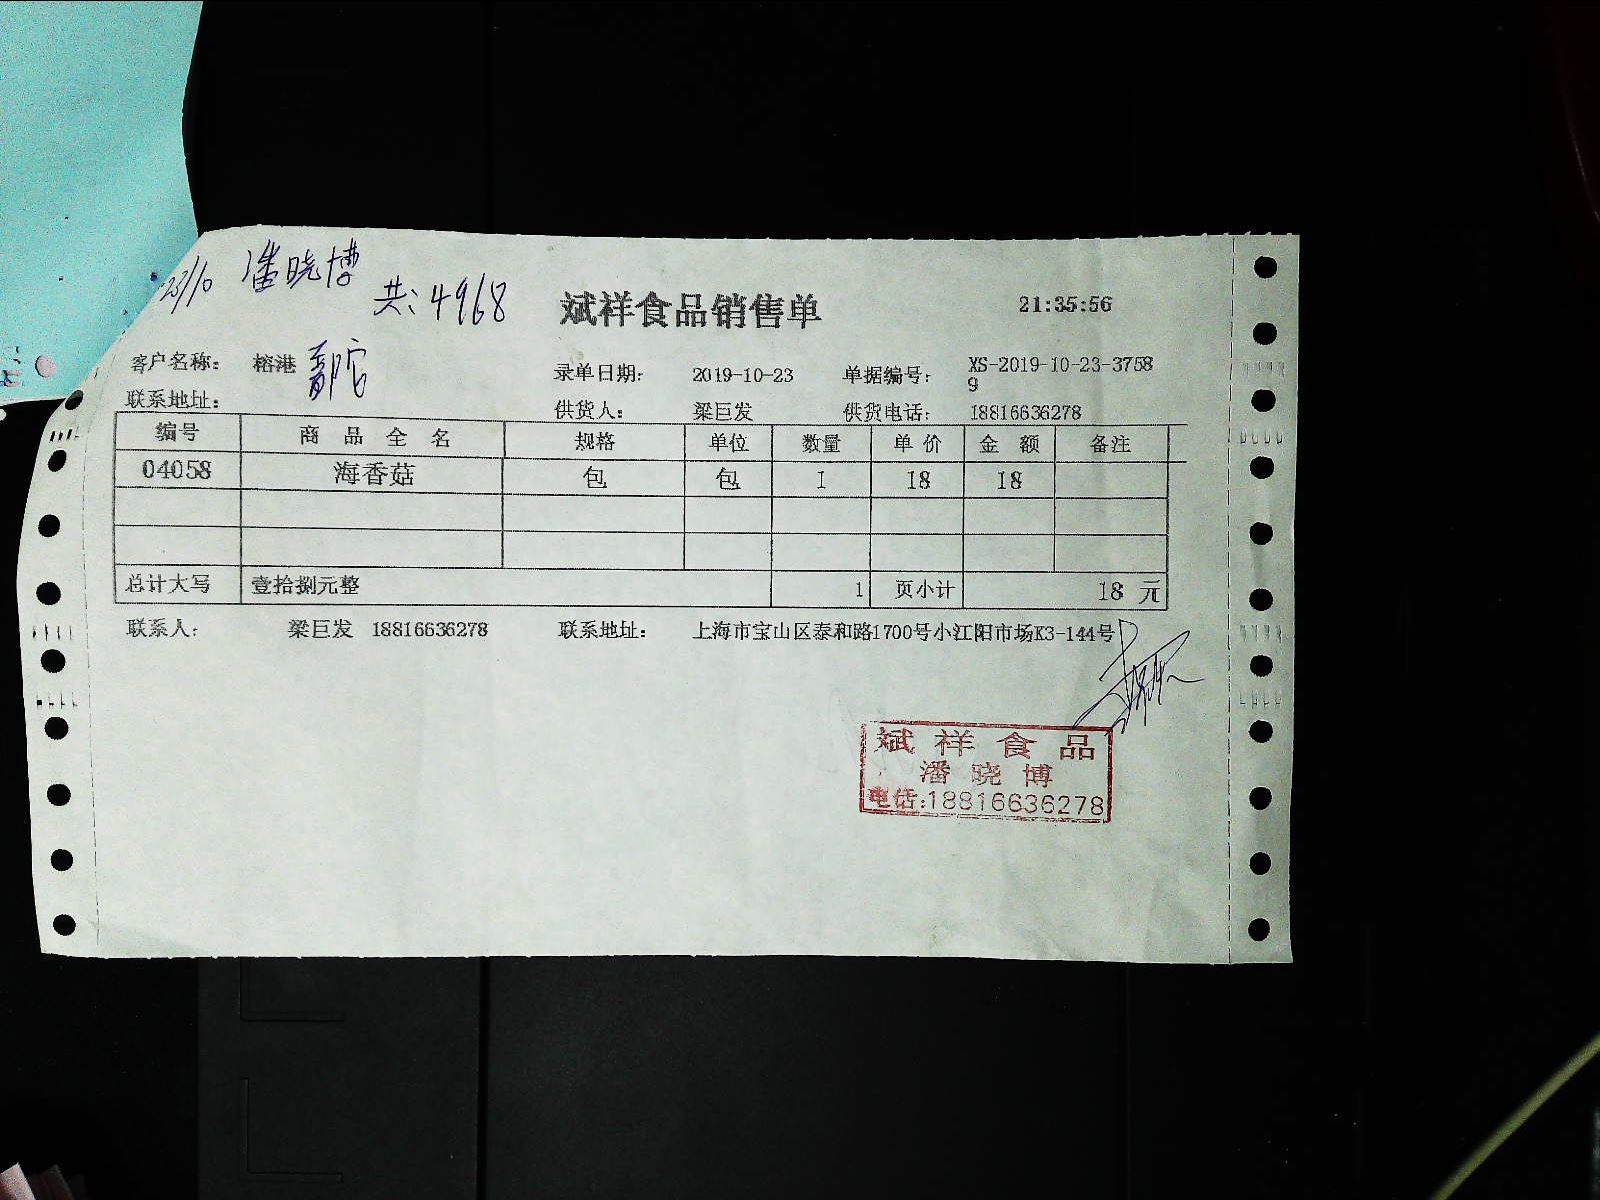 23/10 潘晓博
共:4968
斌祥食品销售单 21:35:56
客户名称: 榕港 录单日期: 2019-10-23 单据编号: XS-2019-10-23-3758
9
联系地址: 供货人: 梁巨发 供货电话: 18816636278
编号 商品全名 规格 单位 数量 单价 金额 备注
04058 海香菇 包 包 1 18 18
总计大写 壹拾捌元整 1 页小计 18 元
联系人: 梁巨发 18816636278 联系地址: 上海市宝山区泰和路1700号小江阳市场K3-144号
斌祥食品
潘晓博
电话:18816636278